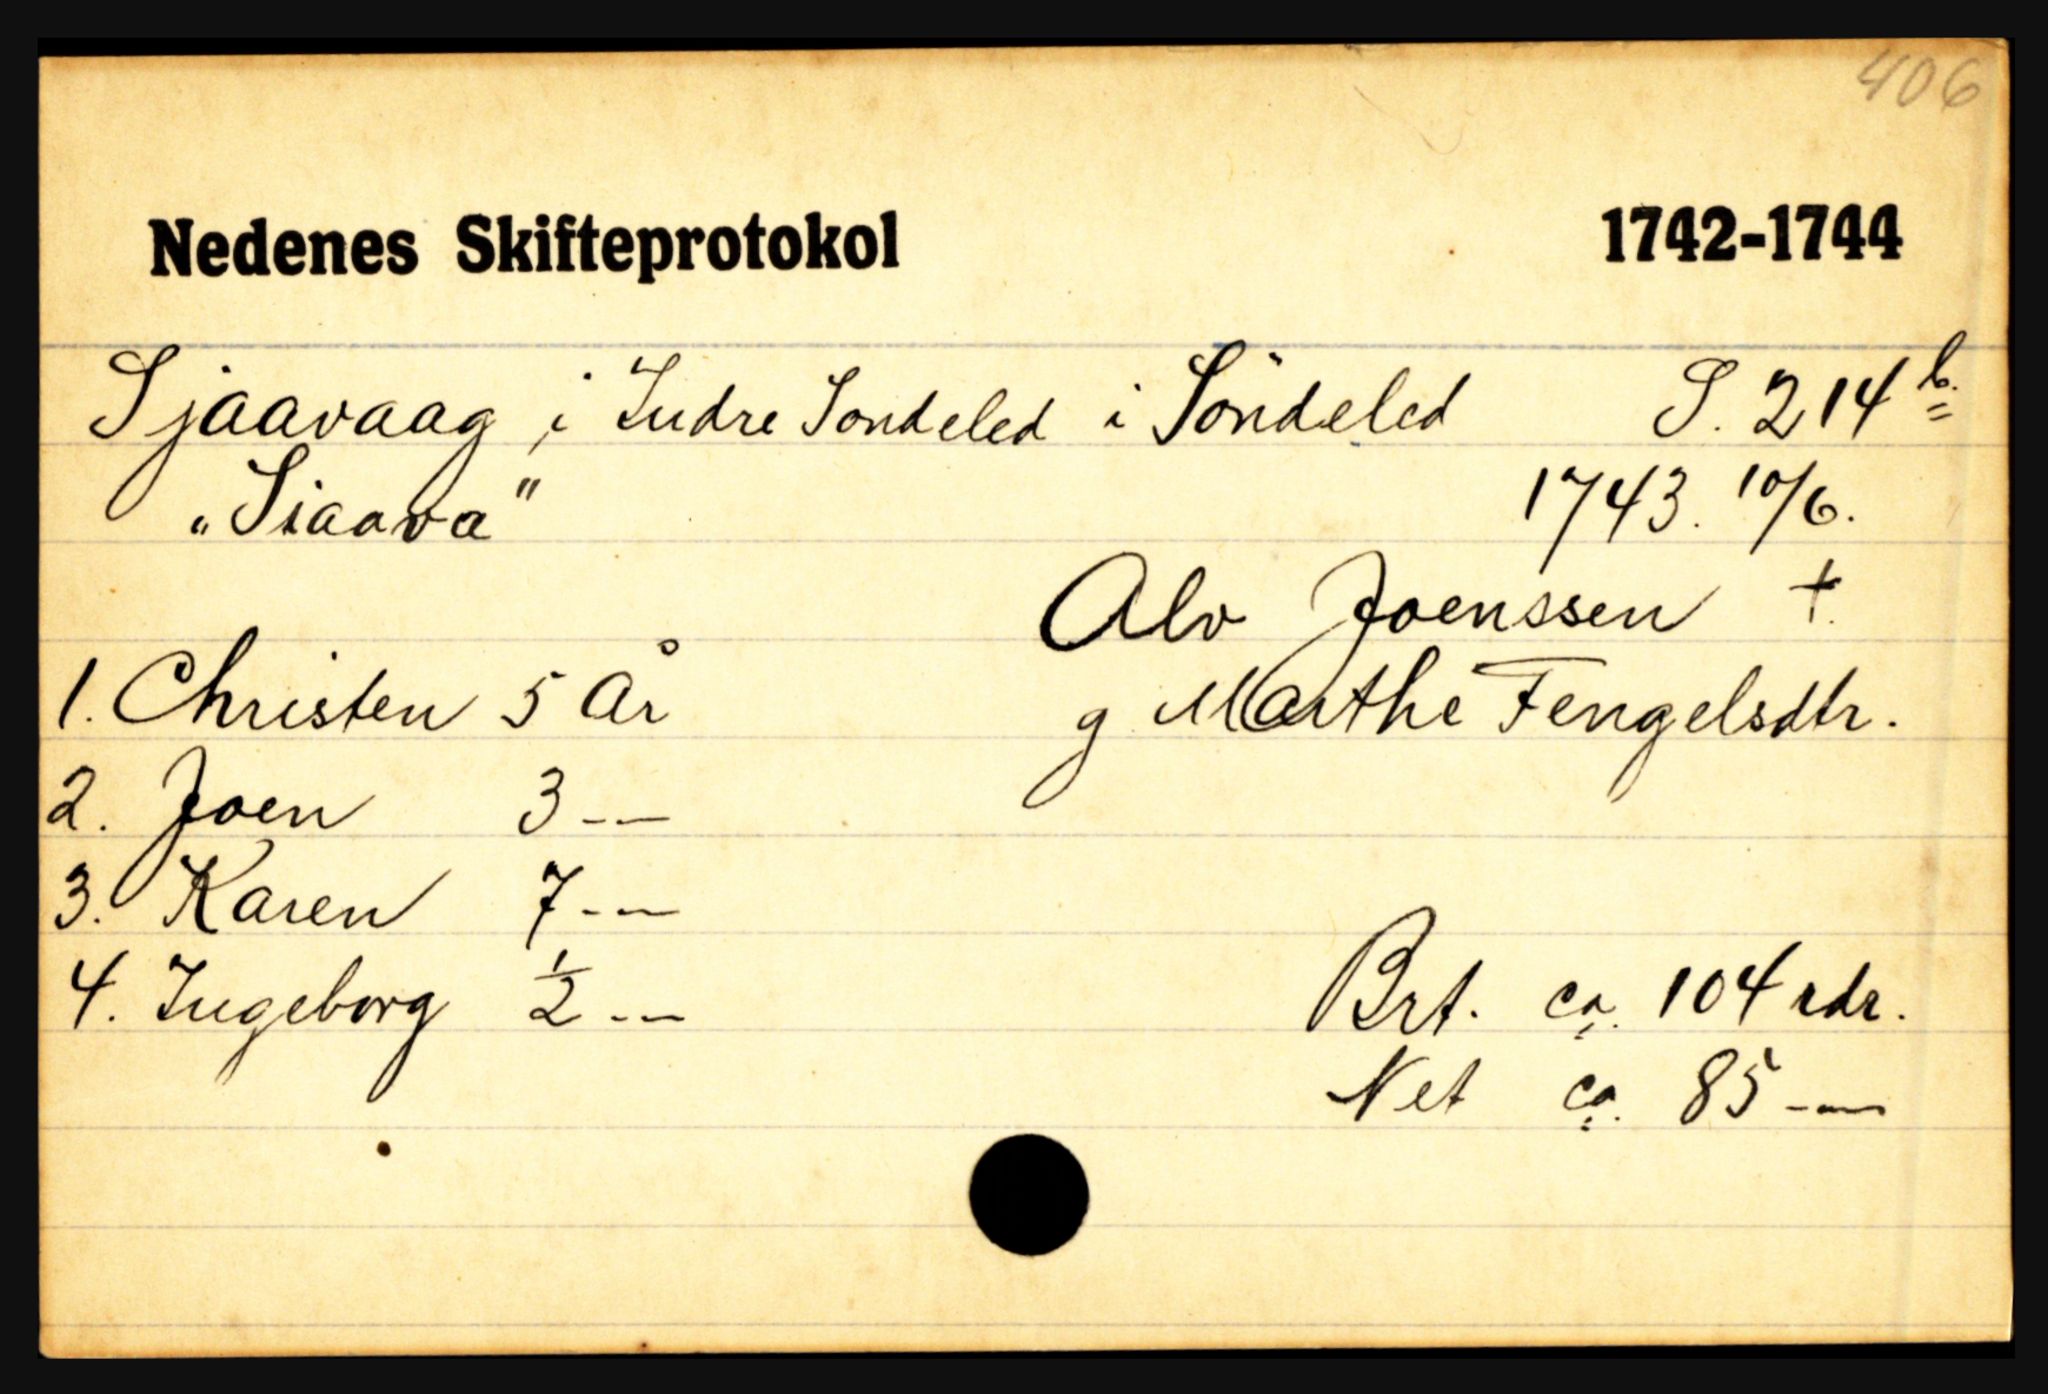 406
Nedenes Skifteprotokol 1742-1744
Sjaavaag, i Indre Sondeled i Söndeled S. 214 b.
"Siaava" 1743. 10/6.
Alv Joenssen †.
1. Christen 5 År g Marthe Fengelsdtr.
2. Joen 3 --
3. Karen 7 --
4. Ingeborg ½ --
Brt. ca. 104 rdr.
Net ca. 85 --